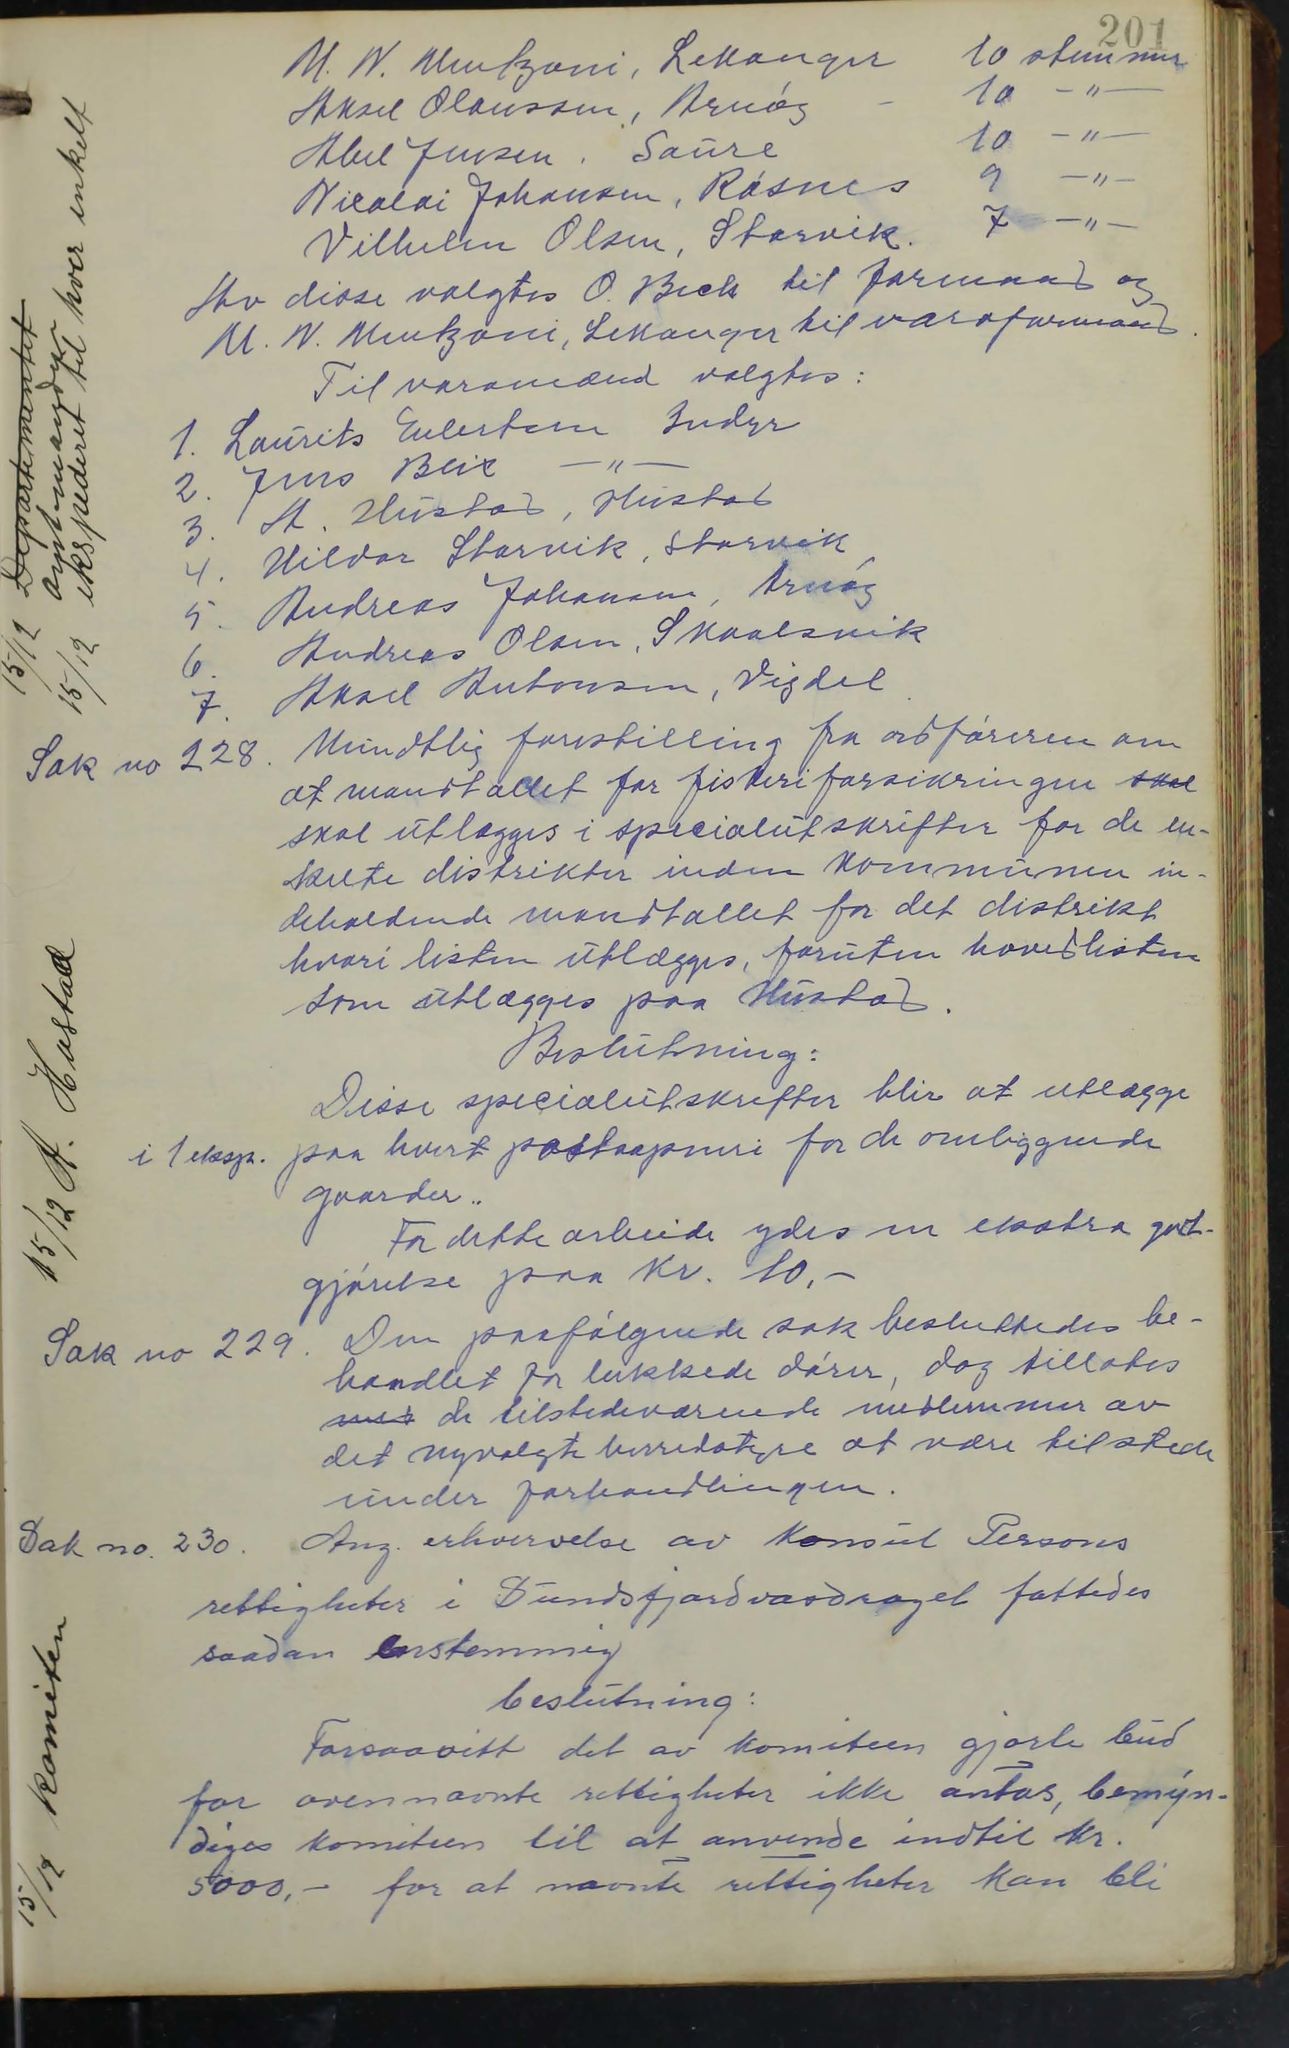 201
M. N. Mentzoni, Lekanger 10 stemmer
Aksel Olaussen, Arnøy - 10 -"-
Abel Jensen. Saure 10 -"-
Nicolai Johansen, Räsnes 9 -"-
Vilhelm Olsen, Storvik. 7 -"-
Av disse valgtes O. Beck til formand og
M. N. Mentzoni, Lekanger til varaformand.
Til varamænd valgtes:
1. Laurits Evlertsen Indyr
2. Jens Blix -"-
3. A. Hustad, Hustad
4. Hildor Storvik, Storvik
5. Andreas Johansen, Arnøy
6. Andreas Olsen, Skaalsvik
7. Aksel Antonsen, Vigdel
Departementet
15/12 amtmanden
15/12 ekspederet til hver enkelt
Sak no 228. Mundtlig forestilling fra ordføreren om
at mandtallet for fiskeriforsikringen skal
skal utlægges i specialutskrifter for de en-
kelte distrikter inden kommunen in-
deholdende mandtallet for det distrikt
hvori listen utlægges, foruten hovedlisten
som utlægges paa Hustad.
Beslutning:
Disse specialutskrifter blir at utlægge
i 1 eksp. paa hvert postaapneri for de omliggende
gaarder..
For dette arbeide ydes en ekstra godt-
gjørelse paa kr. 10,-
15/12 A. Hustad
Sak no 229. Den paafølgende sak besluttedes be-
handlet for lukkede dører, dog tillates
med de tilstedeværende medlemmer av
det nyvalgte herredstyre at være tilstede
under forhandlingen.
Sak no. 230. Ang. erhvervelse av konsul Persons
rettigheter i Sundsfjordvasdraget fattedes
saadan enstemmig
beslutning:
Forsaavitt det av komiteen gjorte bud
for ovennævnte rettigheter ikke antas, bemyn-
diges komiteen til at anvende indtil kr.
5000,- for at nævnte rettigheter kan bli
15/12 komiteen